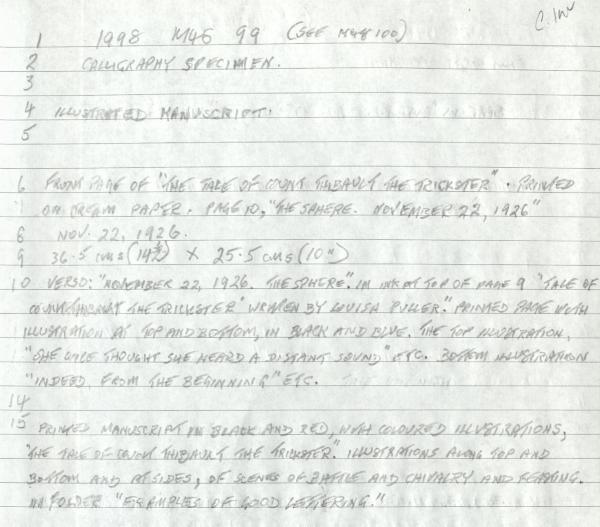 C. Inv
1 1998 M46 99 (SEE M46 100)
2 CALLIGRAPHY SPECIMEN.
3
4 ILLUSTRATED MANUSCRIPT.
5
6 FRONT PAGE OF "THE TALE OF COUNT THIBAULT THE TRICKSTER". PRINTED
ON CREAM PAPER. PAGE 10, "THE SPHERE. NOVEMBER 22, 1926"
8 NOV. 22, 1926.
9 36.5 cms (14 ) X 25.5 cms (10")
10 VERSO: "NOVEMBER 22, 1926. THE SPHERE". IN INK AT TOP OF PAGE 9 "TALE OF
COUNT THIBAULT THE TRICKSTER" WRITTEN BY LOUISA PULLER." PRINTED PAGE WITH
ILLUSTRATION AT TOP AND BOTTOM, IN BLACK AND BLUE. THE TOP ILLUSTRATION,
"SHE THOUGHT SHE HEARD A DISTANT SOUND" ETC. BOTTOM ILLUSTRATION
"INDEED, FROM THE BEGINNING" ETC.
14
15 PRINTED MANUSCRIPT IN BLACK AND RED, WITH COLOURED ILLUSTRATIONS,
"THE TALE OF COUNT THIBAULT THE TRICKSTER". ILLUSTRATIONS ALONG TOP AND
BOTTOM AND AT SIDES, OF SCENES OF BATTLE AND CHIVALRY AND FEASTING.
IN FOLDER "EXAMPLES OF GOOD LETTERING."